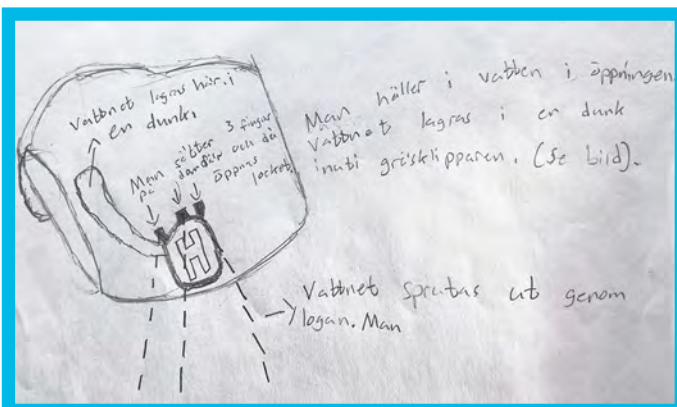 Vattnet lagras här. i
en dunk.
Man sätter 3 fingrar
på där och då
öppnas
locket
H
Man häller i vatten i öppningen
Vattnet lagras i en dunk
inuti gräsklipparen. (Se bild).
Vattnet sprutas ut genom
logan. Man